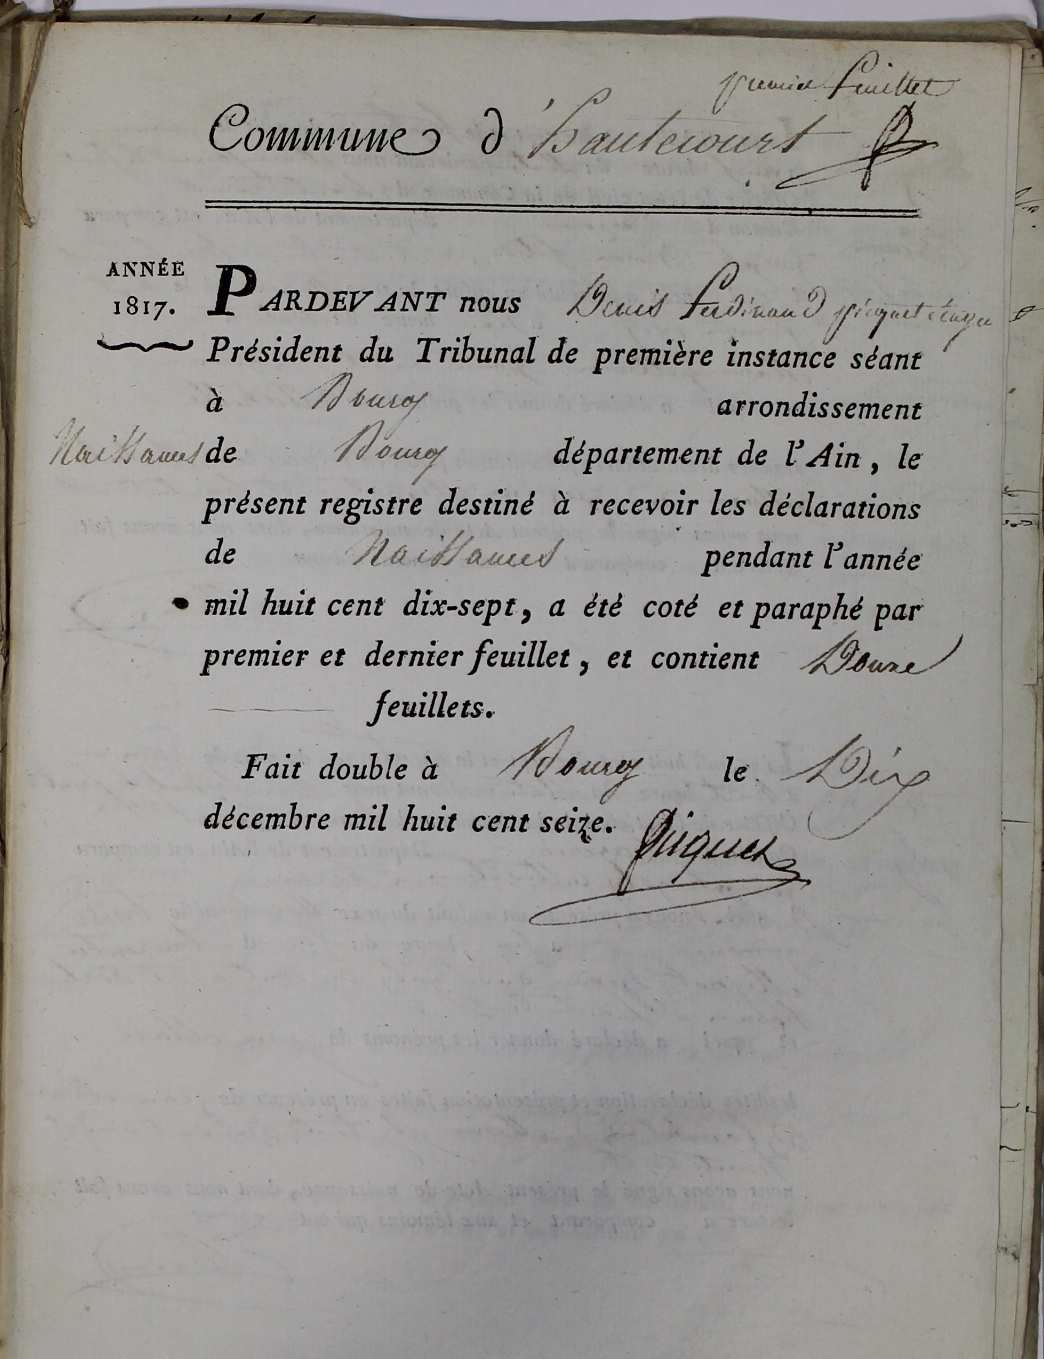 premier feuillet
Commune d'hautecourt
ANNÉE
1817.
PARDEVANT nous Denis Ferdinand piquet écuyer
Président du Tribunal de première instance séant
à Bourg arrondissement
Naissances de Bourg département de l'Ain, le
présent registre destiné à recevoir les déclarations
de Naissances pendant l'année
mil huit cent dix-sept, a été coté et paraphé par
premier et dernier feuillet, et contient Douze
feuillets.
Fait double à Bourg le Dix
décembre mil huit cent seize.
Piquet